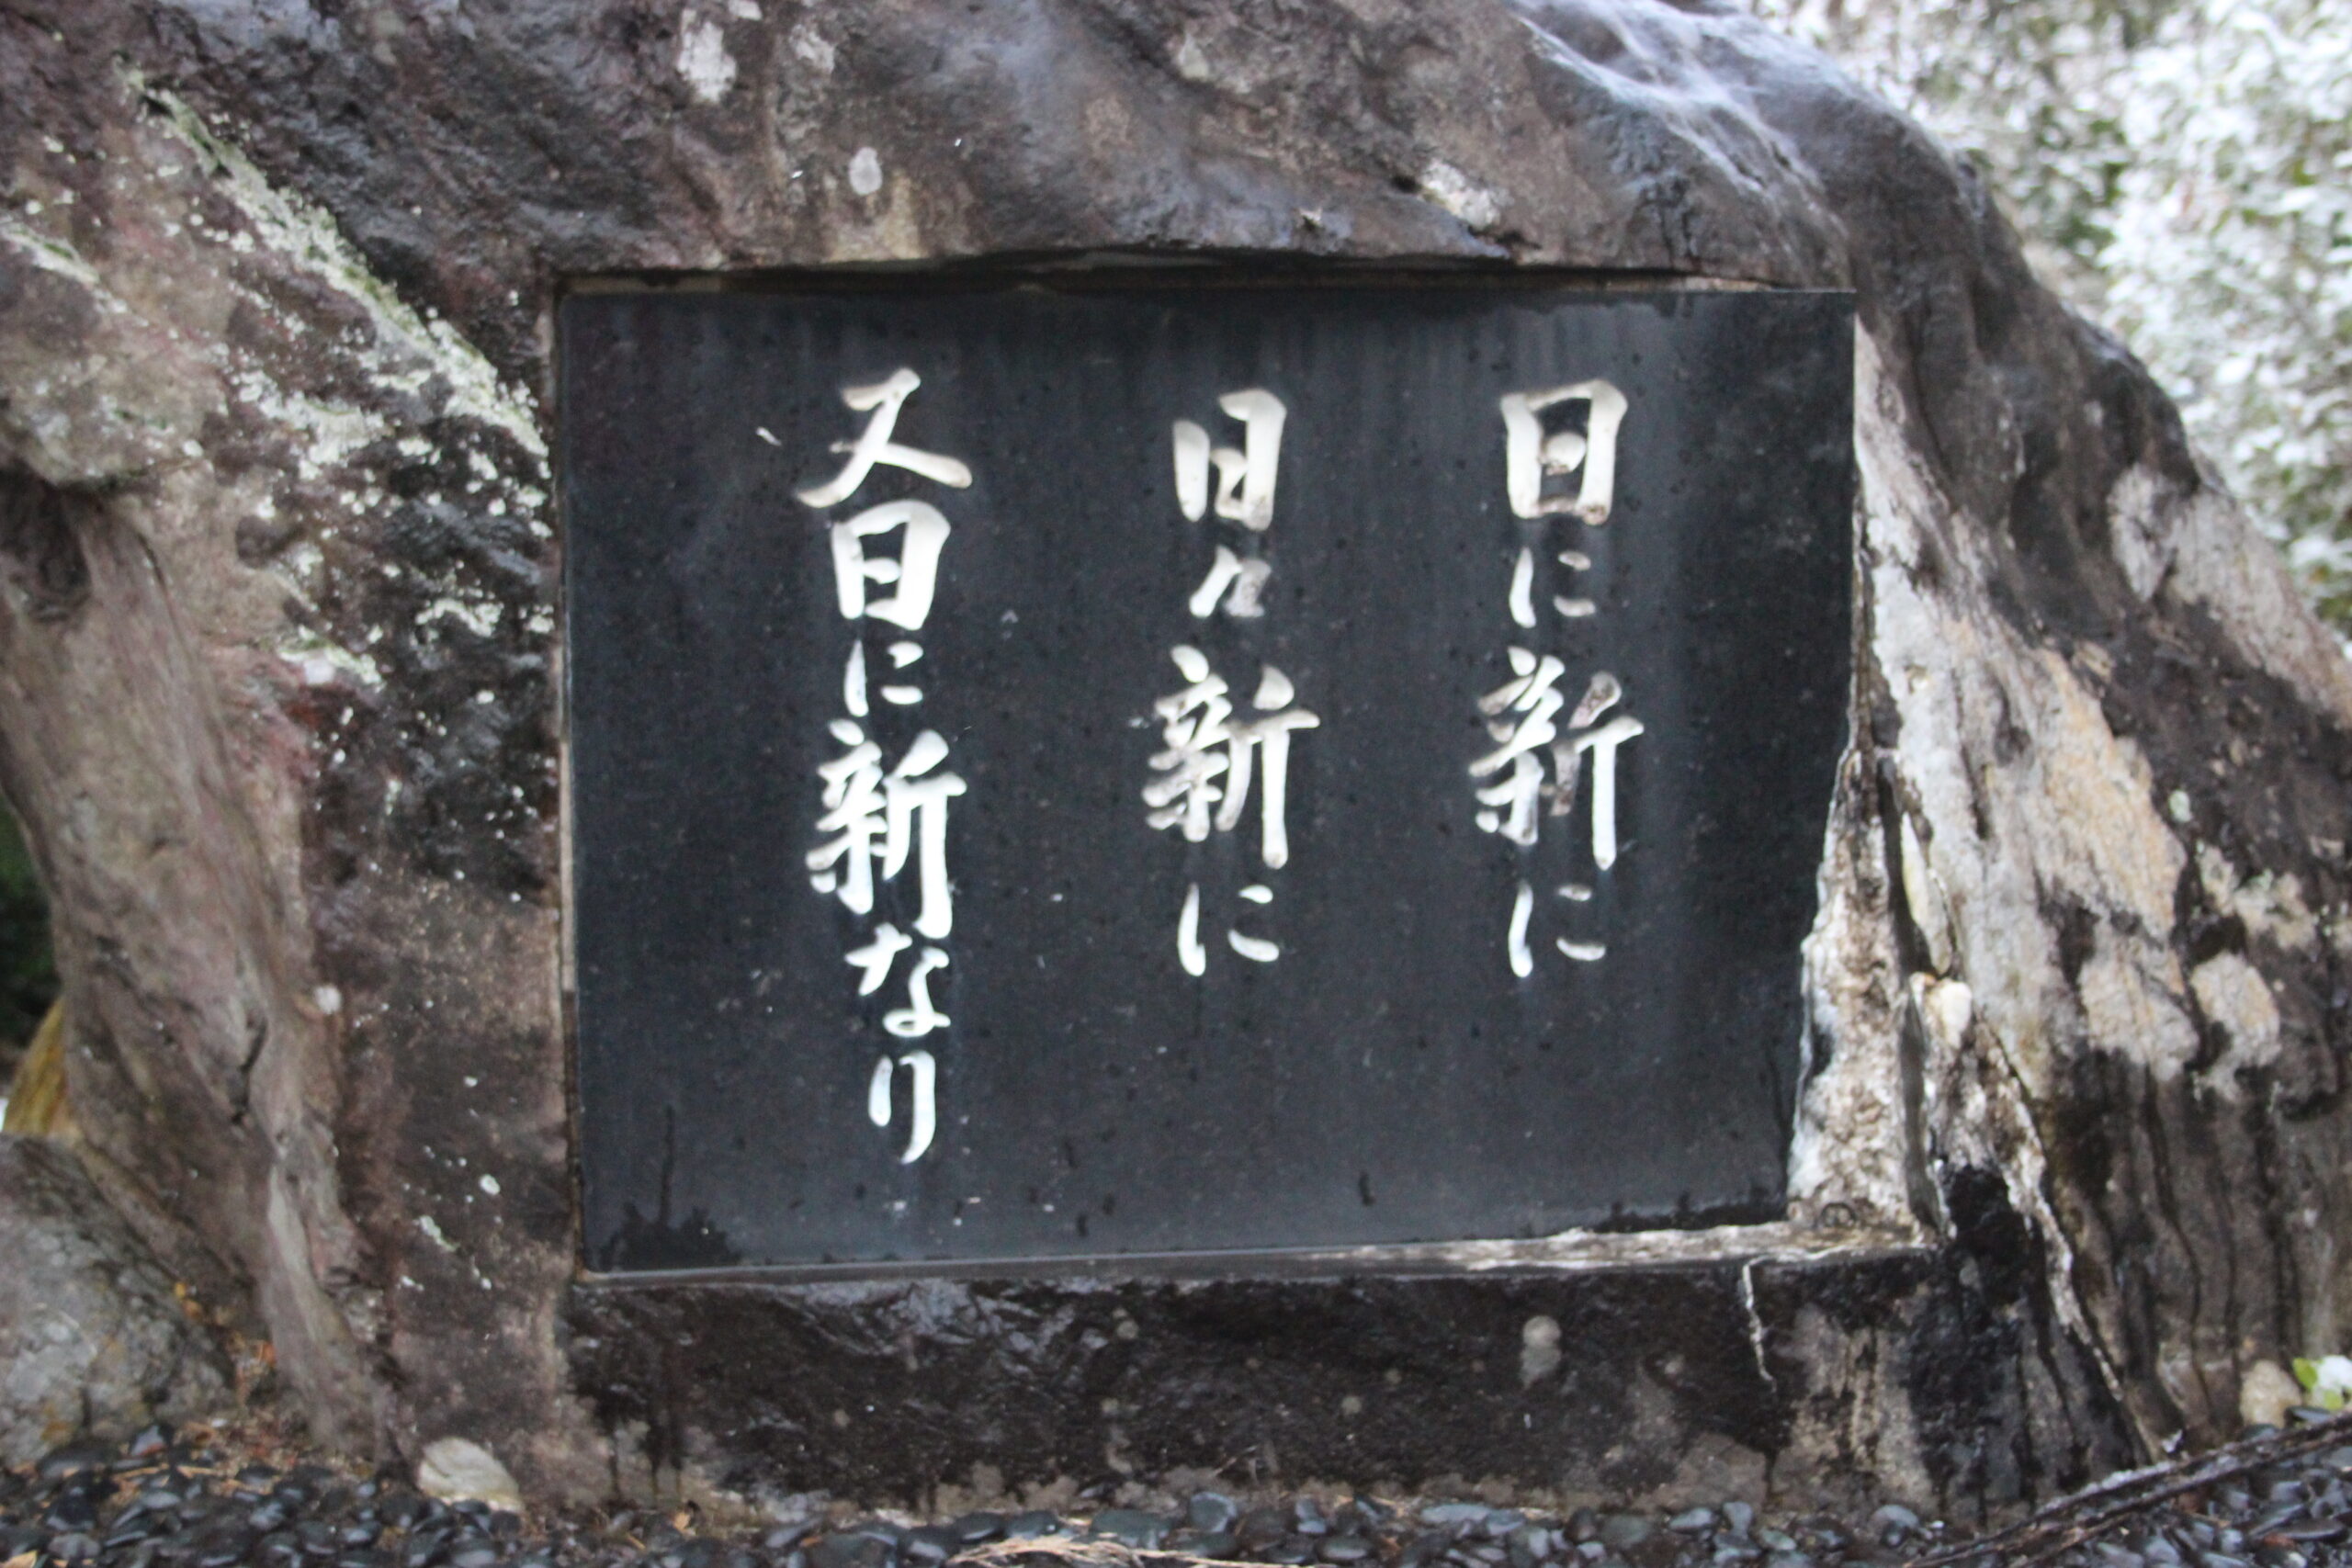 日に新に
日々新に
又日に新なり